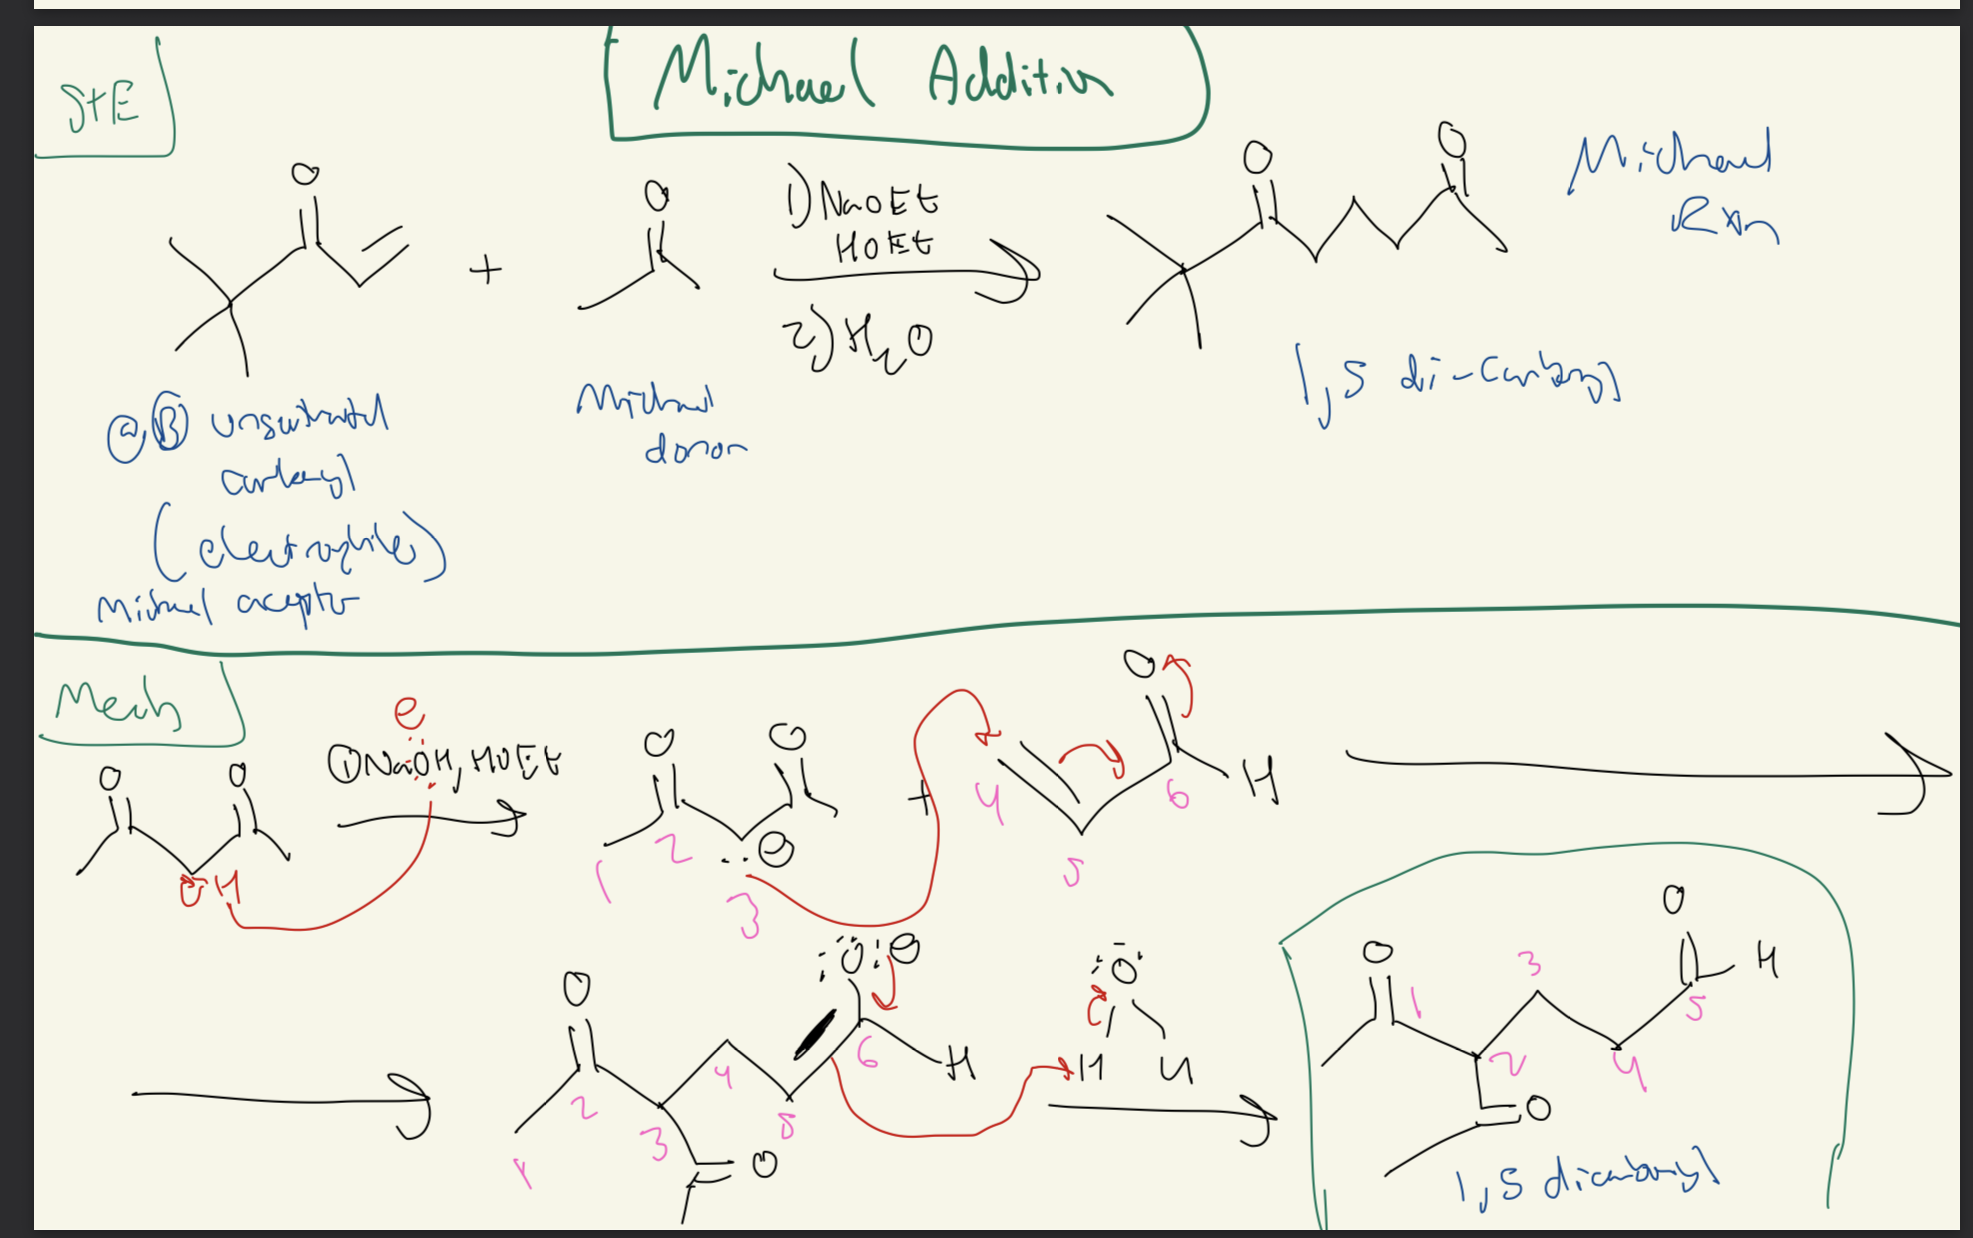 StE
Michael Addition
O
O
1) NaOEt
HOEt
2) H2O
+
O
O
Michael
Rxn
α,β unsaturated
carbonyl
(electrophile)
Michael acceptor
Michael
donor
1,5 di-carbonyl
Mech
e
① NaOH, HOEt
O
O
H
O
O
⊖
1
2
3
+
O
H
4
5
6
O
O
:O: ⊖
H
1
2
3
4
5
6
O
H
H
O
O
H
O
1
2
3
4
5
1,5 dicarbonyl